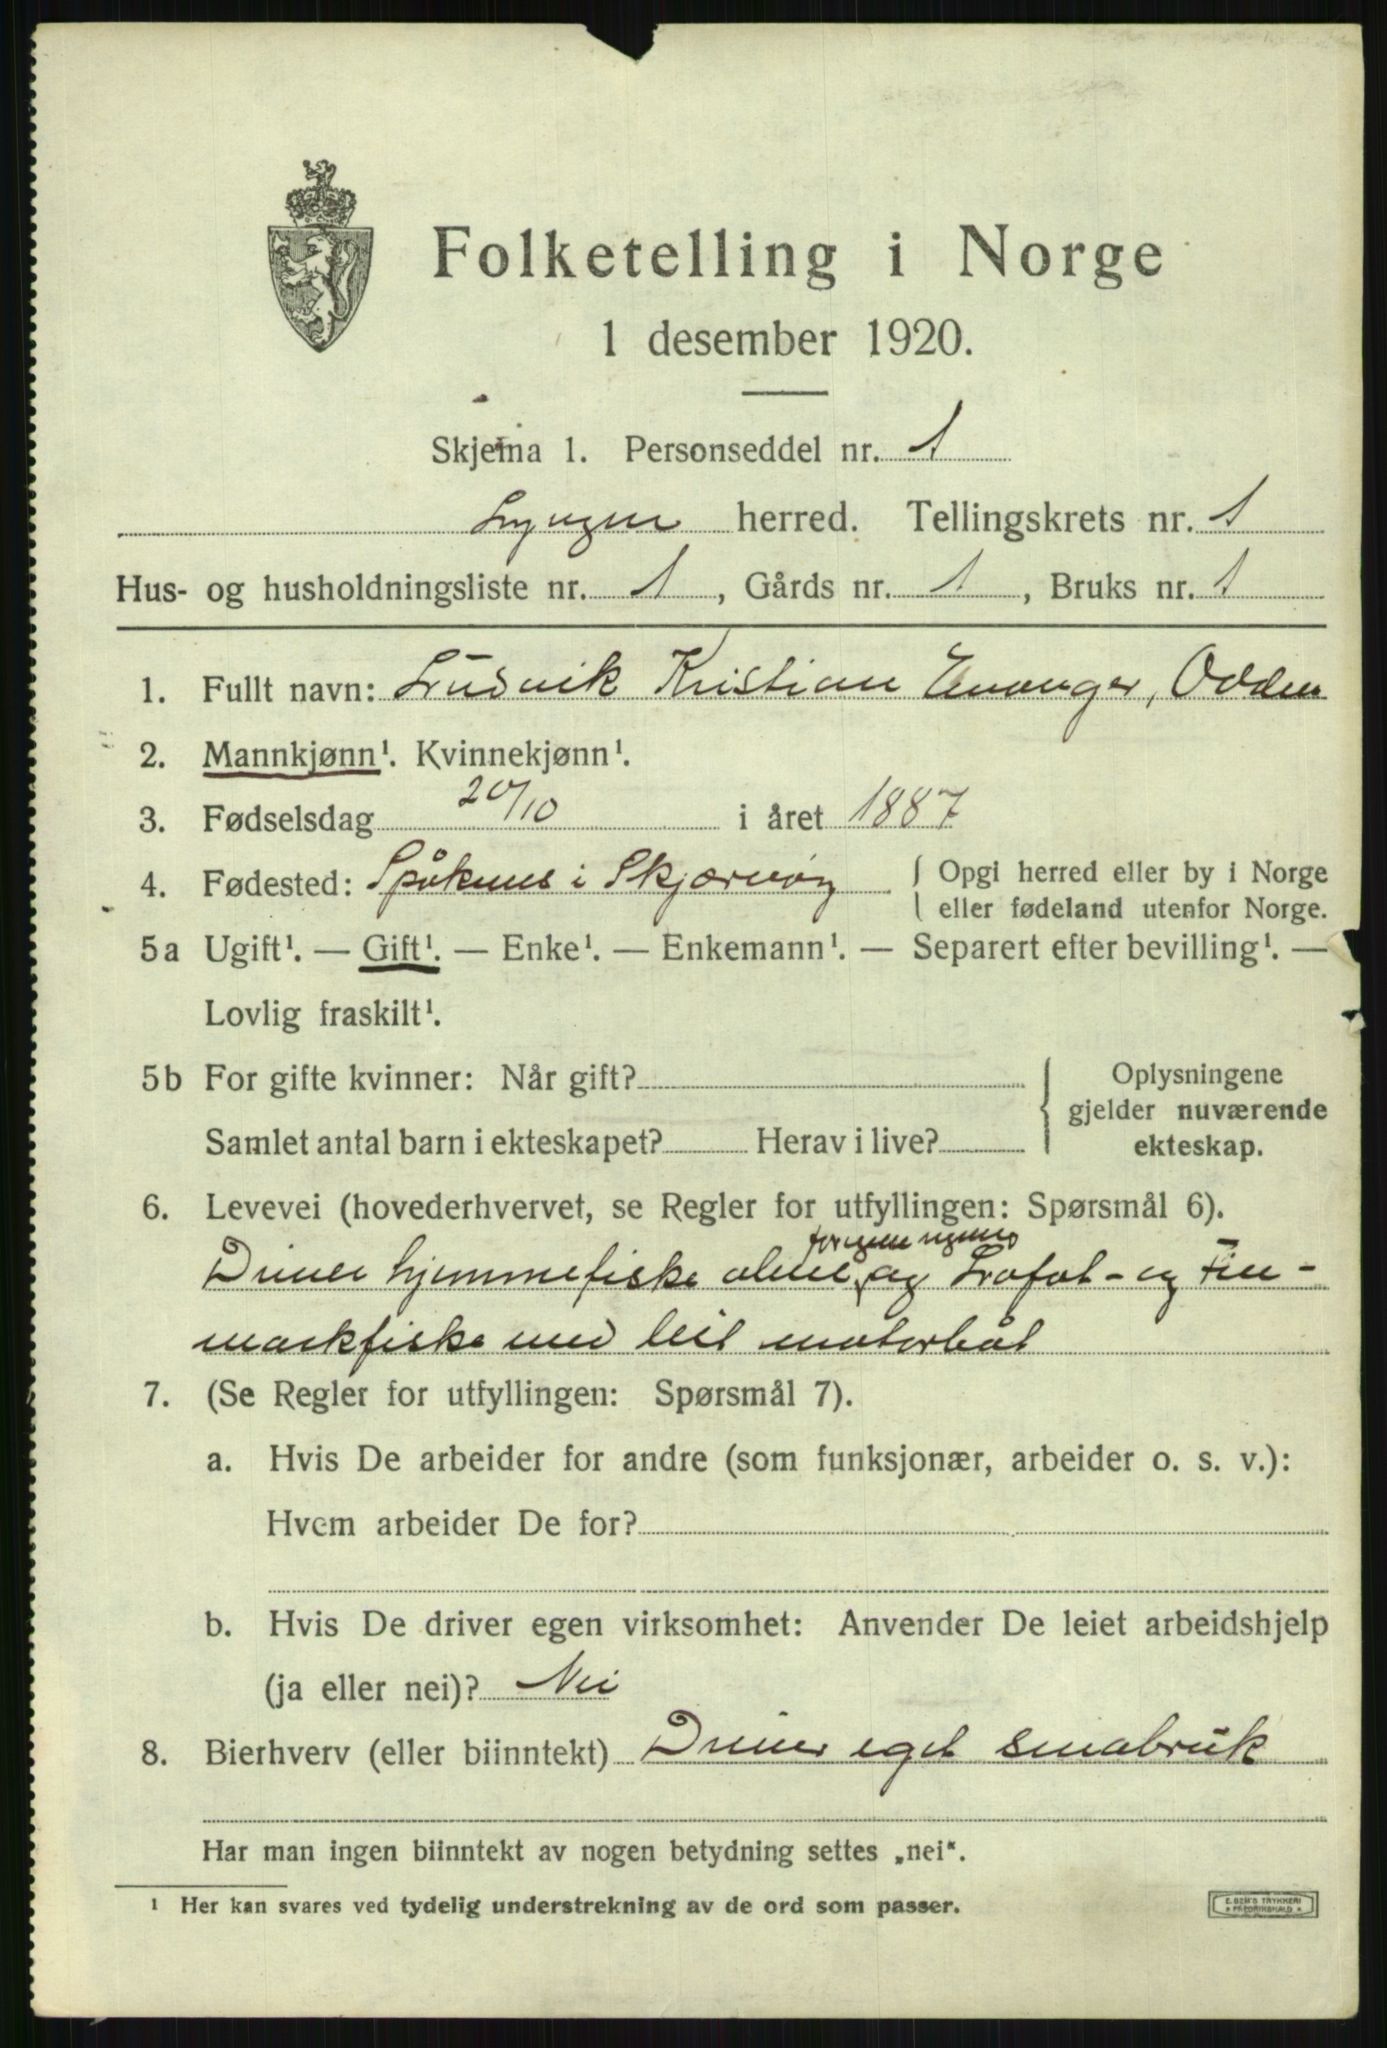 Folketelling i Norge
1 desember 1920.
Skjema 1. Personseddel nr. 1
Lyngen herred. Tellingskrets nr. 1
Hus- og husholdningsliste nr. 1, Gårds nr. 1, Bruks nr. 1
1. Fullt navn: Ludvik Kristian Evanger, Odden
2. Mannkjønn¹. Kvinnekjønn¹.
3. Fødselsdag 20/10 i året 1887
4. Fødested: Spåknes i Skjærvøy { Opgi herred eller by i Norge
eller fødeland utenfor Norge.
5a Ugift¹. — Gift¹. — Enke¹. — Enkemann¹. — Separert efter bevilling¹. —
Lovlig fraskilt¹.
5b For gifte kvinner: Når gift?
Samlet antal barn i ekteskapet? Herav i live?
Oplysningene
gjelder nuværende
ekteskap.
6. Levevei (hovederhvervet, se Regler for utfyllingen: Spørsmål 6).
Driver hjemmefiske alene, og Lofot- og Fin-
markfiske med leit motorbåt
7. (Se Regler for utfyllingen: Spørsmål 7).
a. Hvis De arbeider for andre (som funksjonær, arbeider o. s. v.):
Hvem arbeider De for?
b. Hvis De driver egen virksomhet: Anvender De leiet arbeidshjelp
(ja eller nei)? Nei
8. Bierhverv (eller biinntekt) Driver eget småbruk
Har man ingen biinntekt av nogen betydning settes „nei".
¹ Her kan svares ved tydelig understrekning av de ord som passer.
E. SEM'S TRYKKERI
* FREDRIKSHALD *